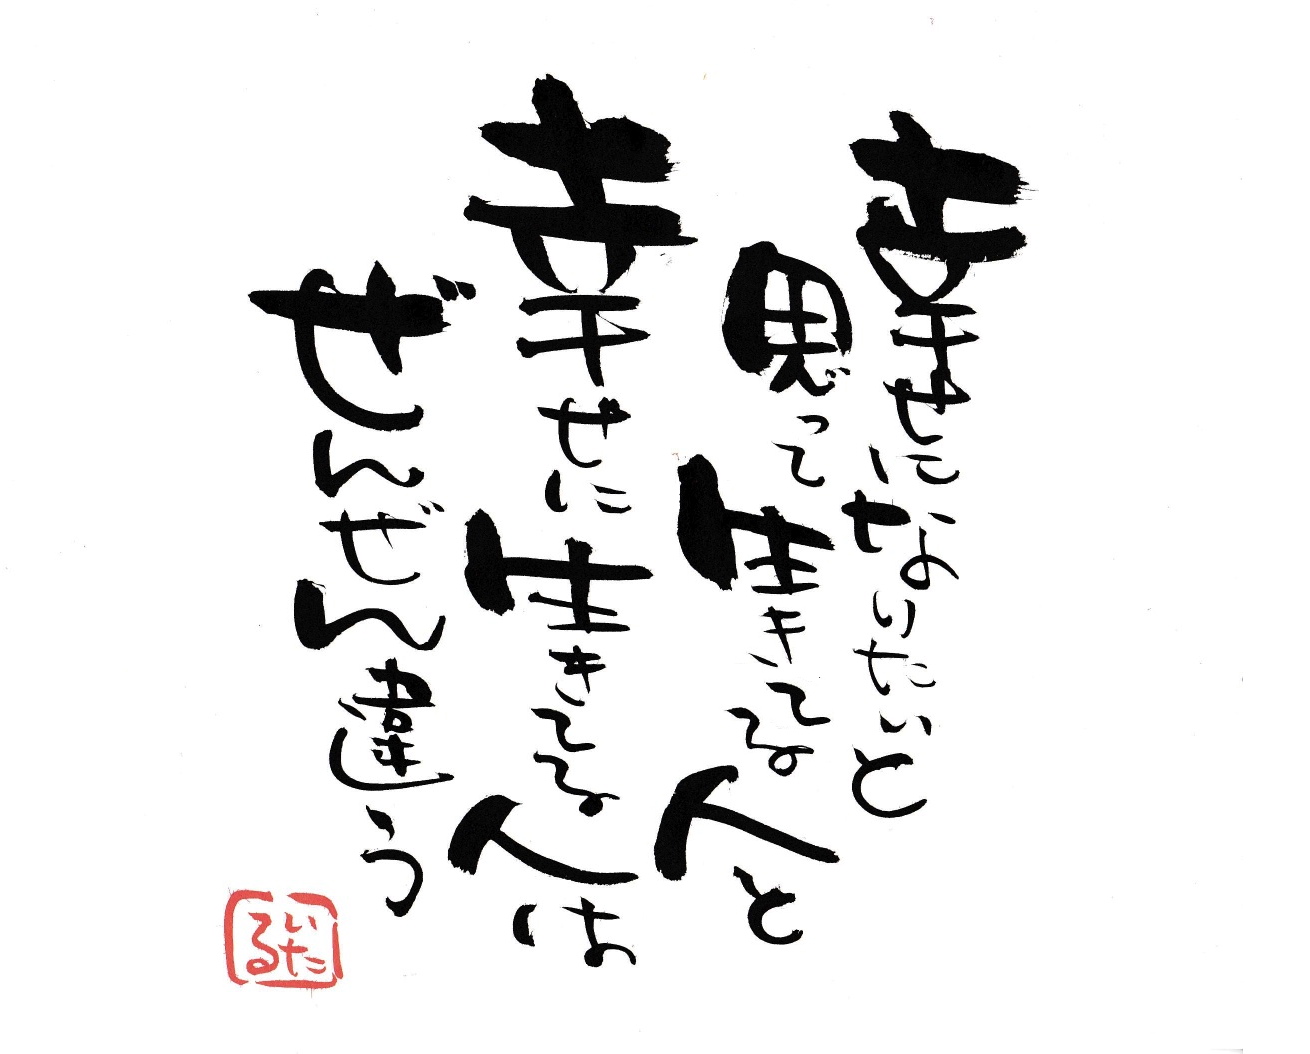 幸せになりたいと
思って生きてる人と
幸せに生きてる人は
ぜんぜん違う
いたる